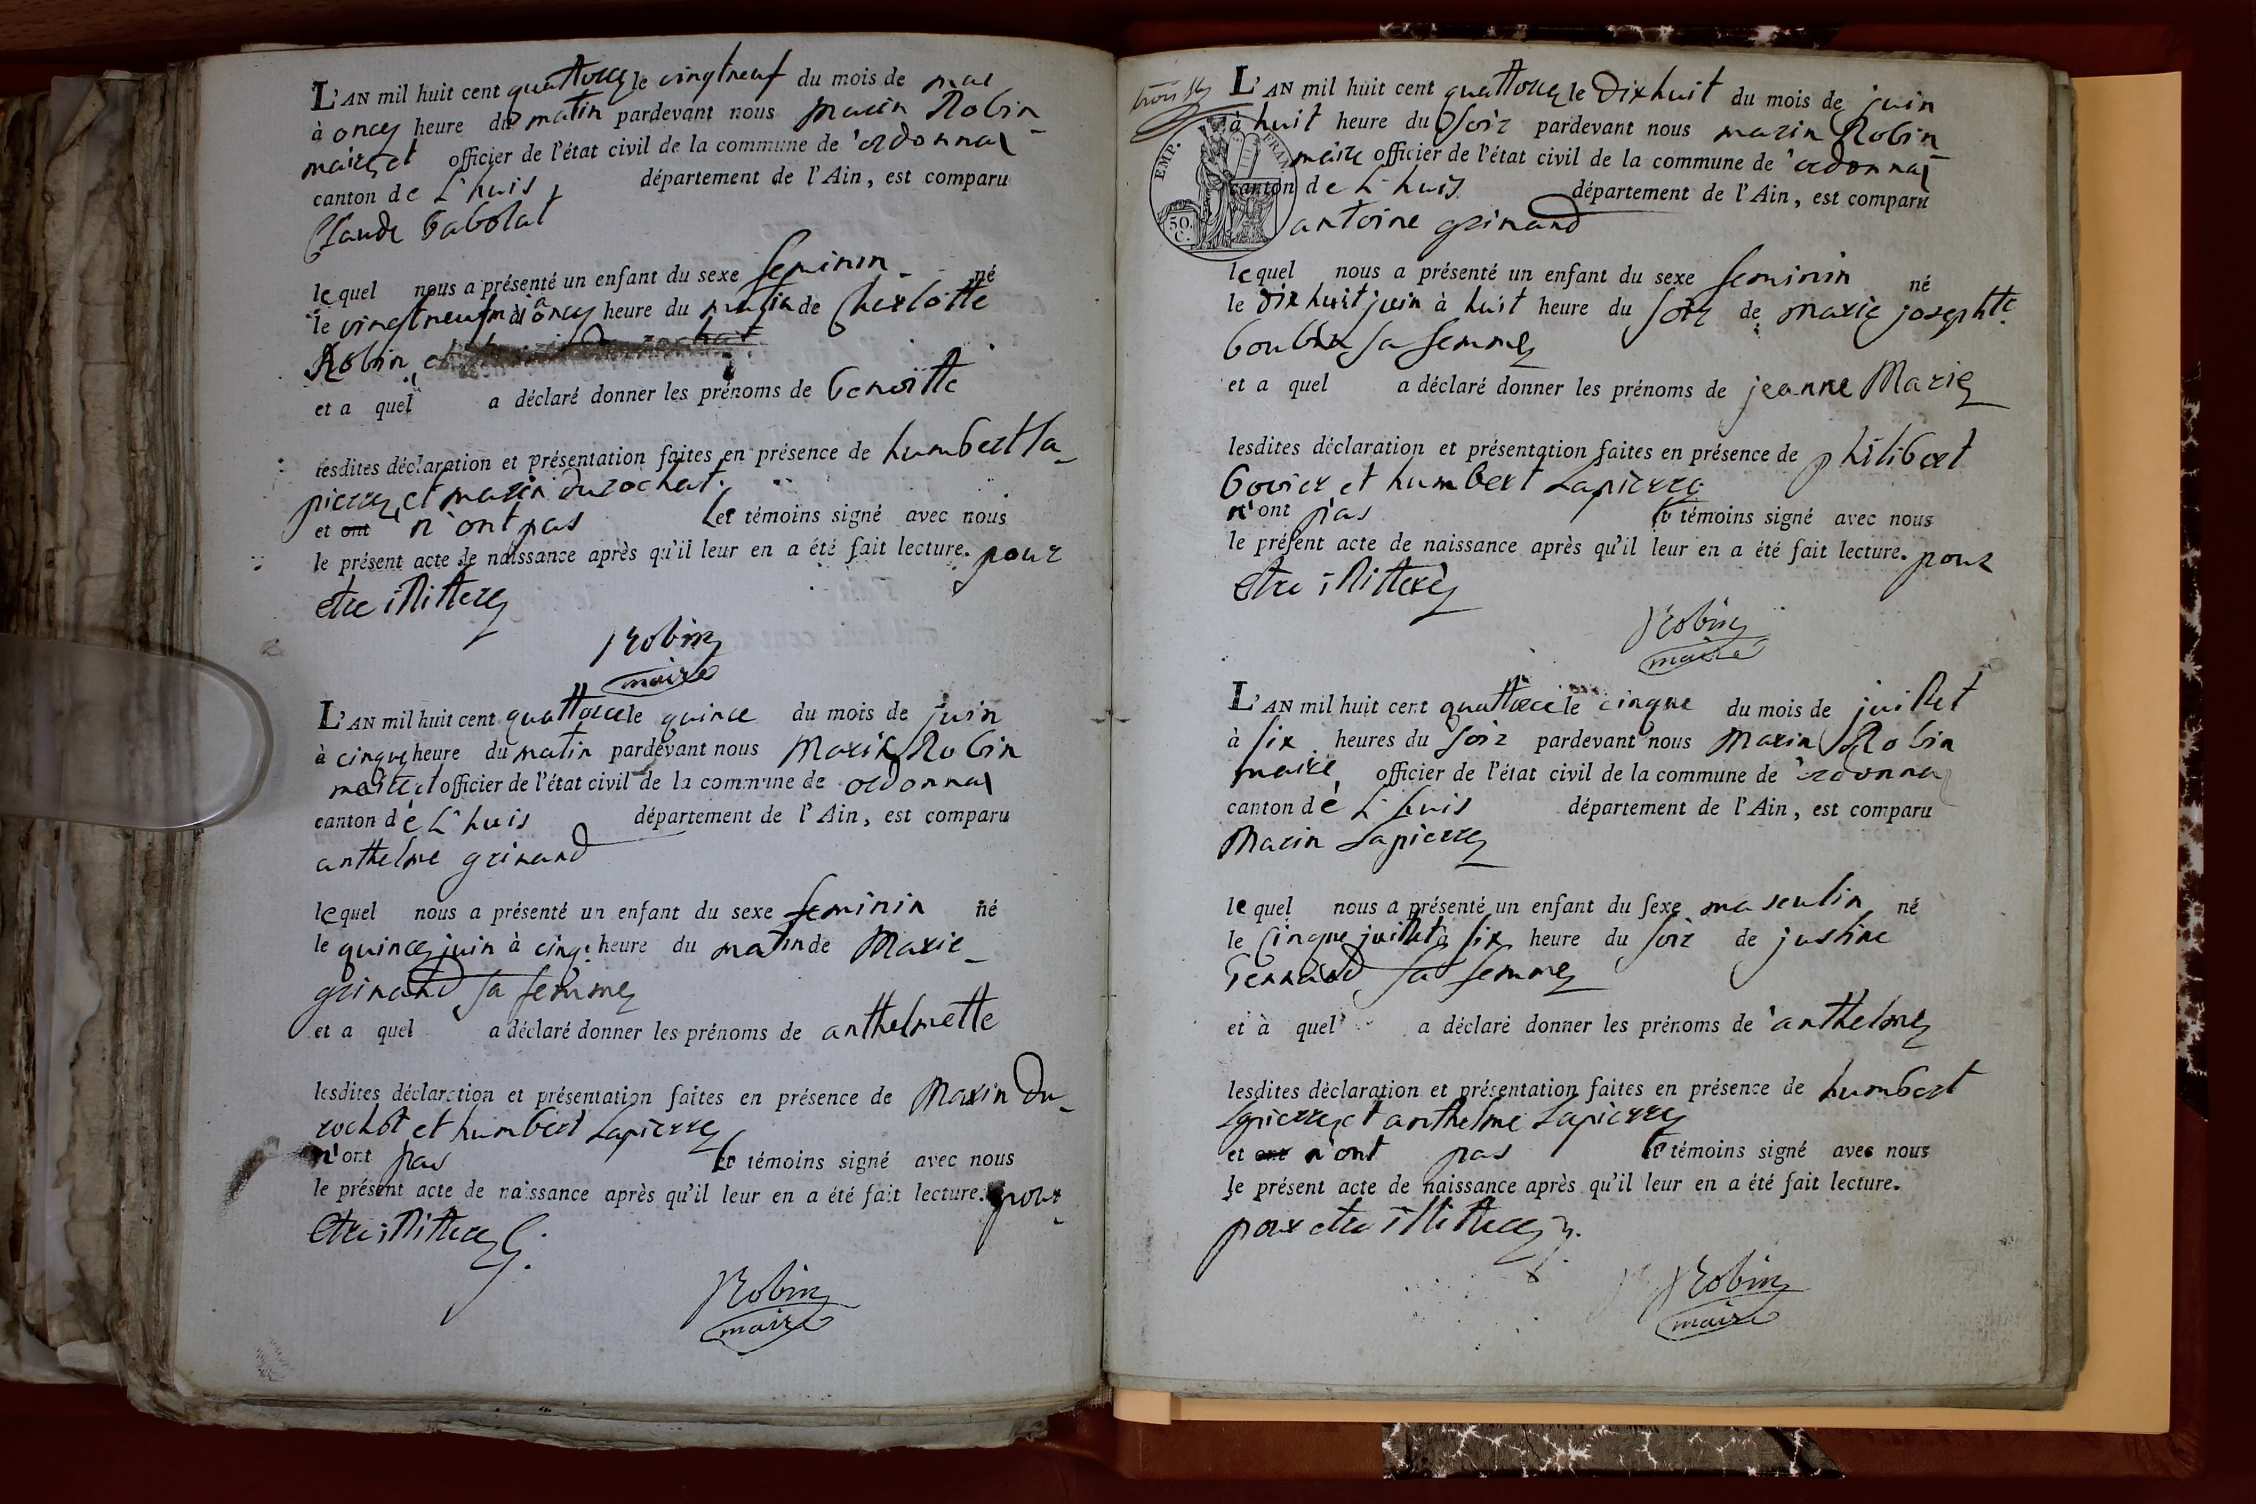 L'AN mil huit cent quattorze le vingtneuf du mois de mai
à onze heure du matin pardevant nous Marin Robin
maire et officier de l'état civil de la commune de ordonnas
canton de L'huis département de l'Ain, est comparu
Claude babolat
lequel nous a présenté un enfant du sexe feminin né
le vingtneuf mai a onze heure du matin de Charlotte
Robin
et a quel a déclaré donner les prénoms de benoitte
lesdites déclaration et présentation faites en présence de humbert la-
pierre et marin durochat.
et ont n'ont pas les témoins signé avec nous
le présent acte de naissance après qu'il leur en a été fait lecture. pour
etre illittere
Robin
maire
L'AN mil huit cent quattorze le quinze du mois de juin
à cinque heure du matin pardevant nous Marin Robin
maire et officier de l'état civil de la commune de ordonnas
canton dé L'huis département de l'Ain, est comparu
anthelme grinand
lequel nous a présenté un enfant du sexe feminin né
le quinze juin à cinq. heure du matin de Marie
grinand sa femme
et a quel a déclaré donner les prénoms de anthelmette
lesdites déclaration et présentation faites en présence de Marin Du-
rochat et humbert Lapierre
n'ont pas les témoins signé avec nous
le présent acte de naissance après qu'il leur en a été fait lecture. pour
Etre illittere
Robin
maire
L'AN mil huit cent quattorze le Dixhuit du mois de juin
à huit heure du soir pardevant nous marin Robin
maire officier de l'état civil de la commune de ordonnas
canton de L'huis département de l'Ain, est comparu
antoine grinand
EMP. FRAN.
50. C.
lequel nous a présenté un enfant du sexe feminin né
le dixhuit juin à huit heure du soir de marie josephte
sa femme
et a quel a déclaré donner les prénoms de jeanne Marie
lesdites déclaration et présentation faites en présence de philibert
bovier et humbert Lapierre
n'ont pas les témoins signé avec nous
le présent acte de naissance après qu'il leur en a été fait lecture. pour
Etre illitterè
Robin
maire
L'AN mil huit cent quattorze le cinque du mois de juillet
à six heures du soir pardevant nous Marin Robin
maire officier de l'état civil de la commune de ordonnas
canton dé L'huis département de l'Ain, est comparu
Marin Lapierre
lequel nous a présenté un enfant du sexe masculin né
le cinque juillet à six heure du soir de justine
sa femme
et à quel a déclaré donner les prénoms de anthelme
lesdites déclaration et présentation faites en présence de humbert
Lapierre et anthelme Lapierre
et ont n'ont pas les témoins signé avec nous
le présent acte de naissance après qu'il leur en a été fait lecture.
pour etre illittere
Robin
maire